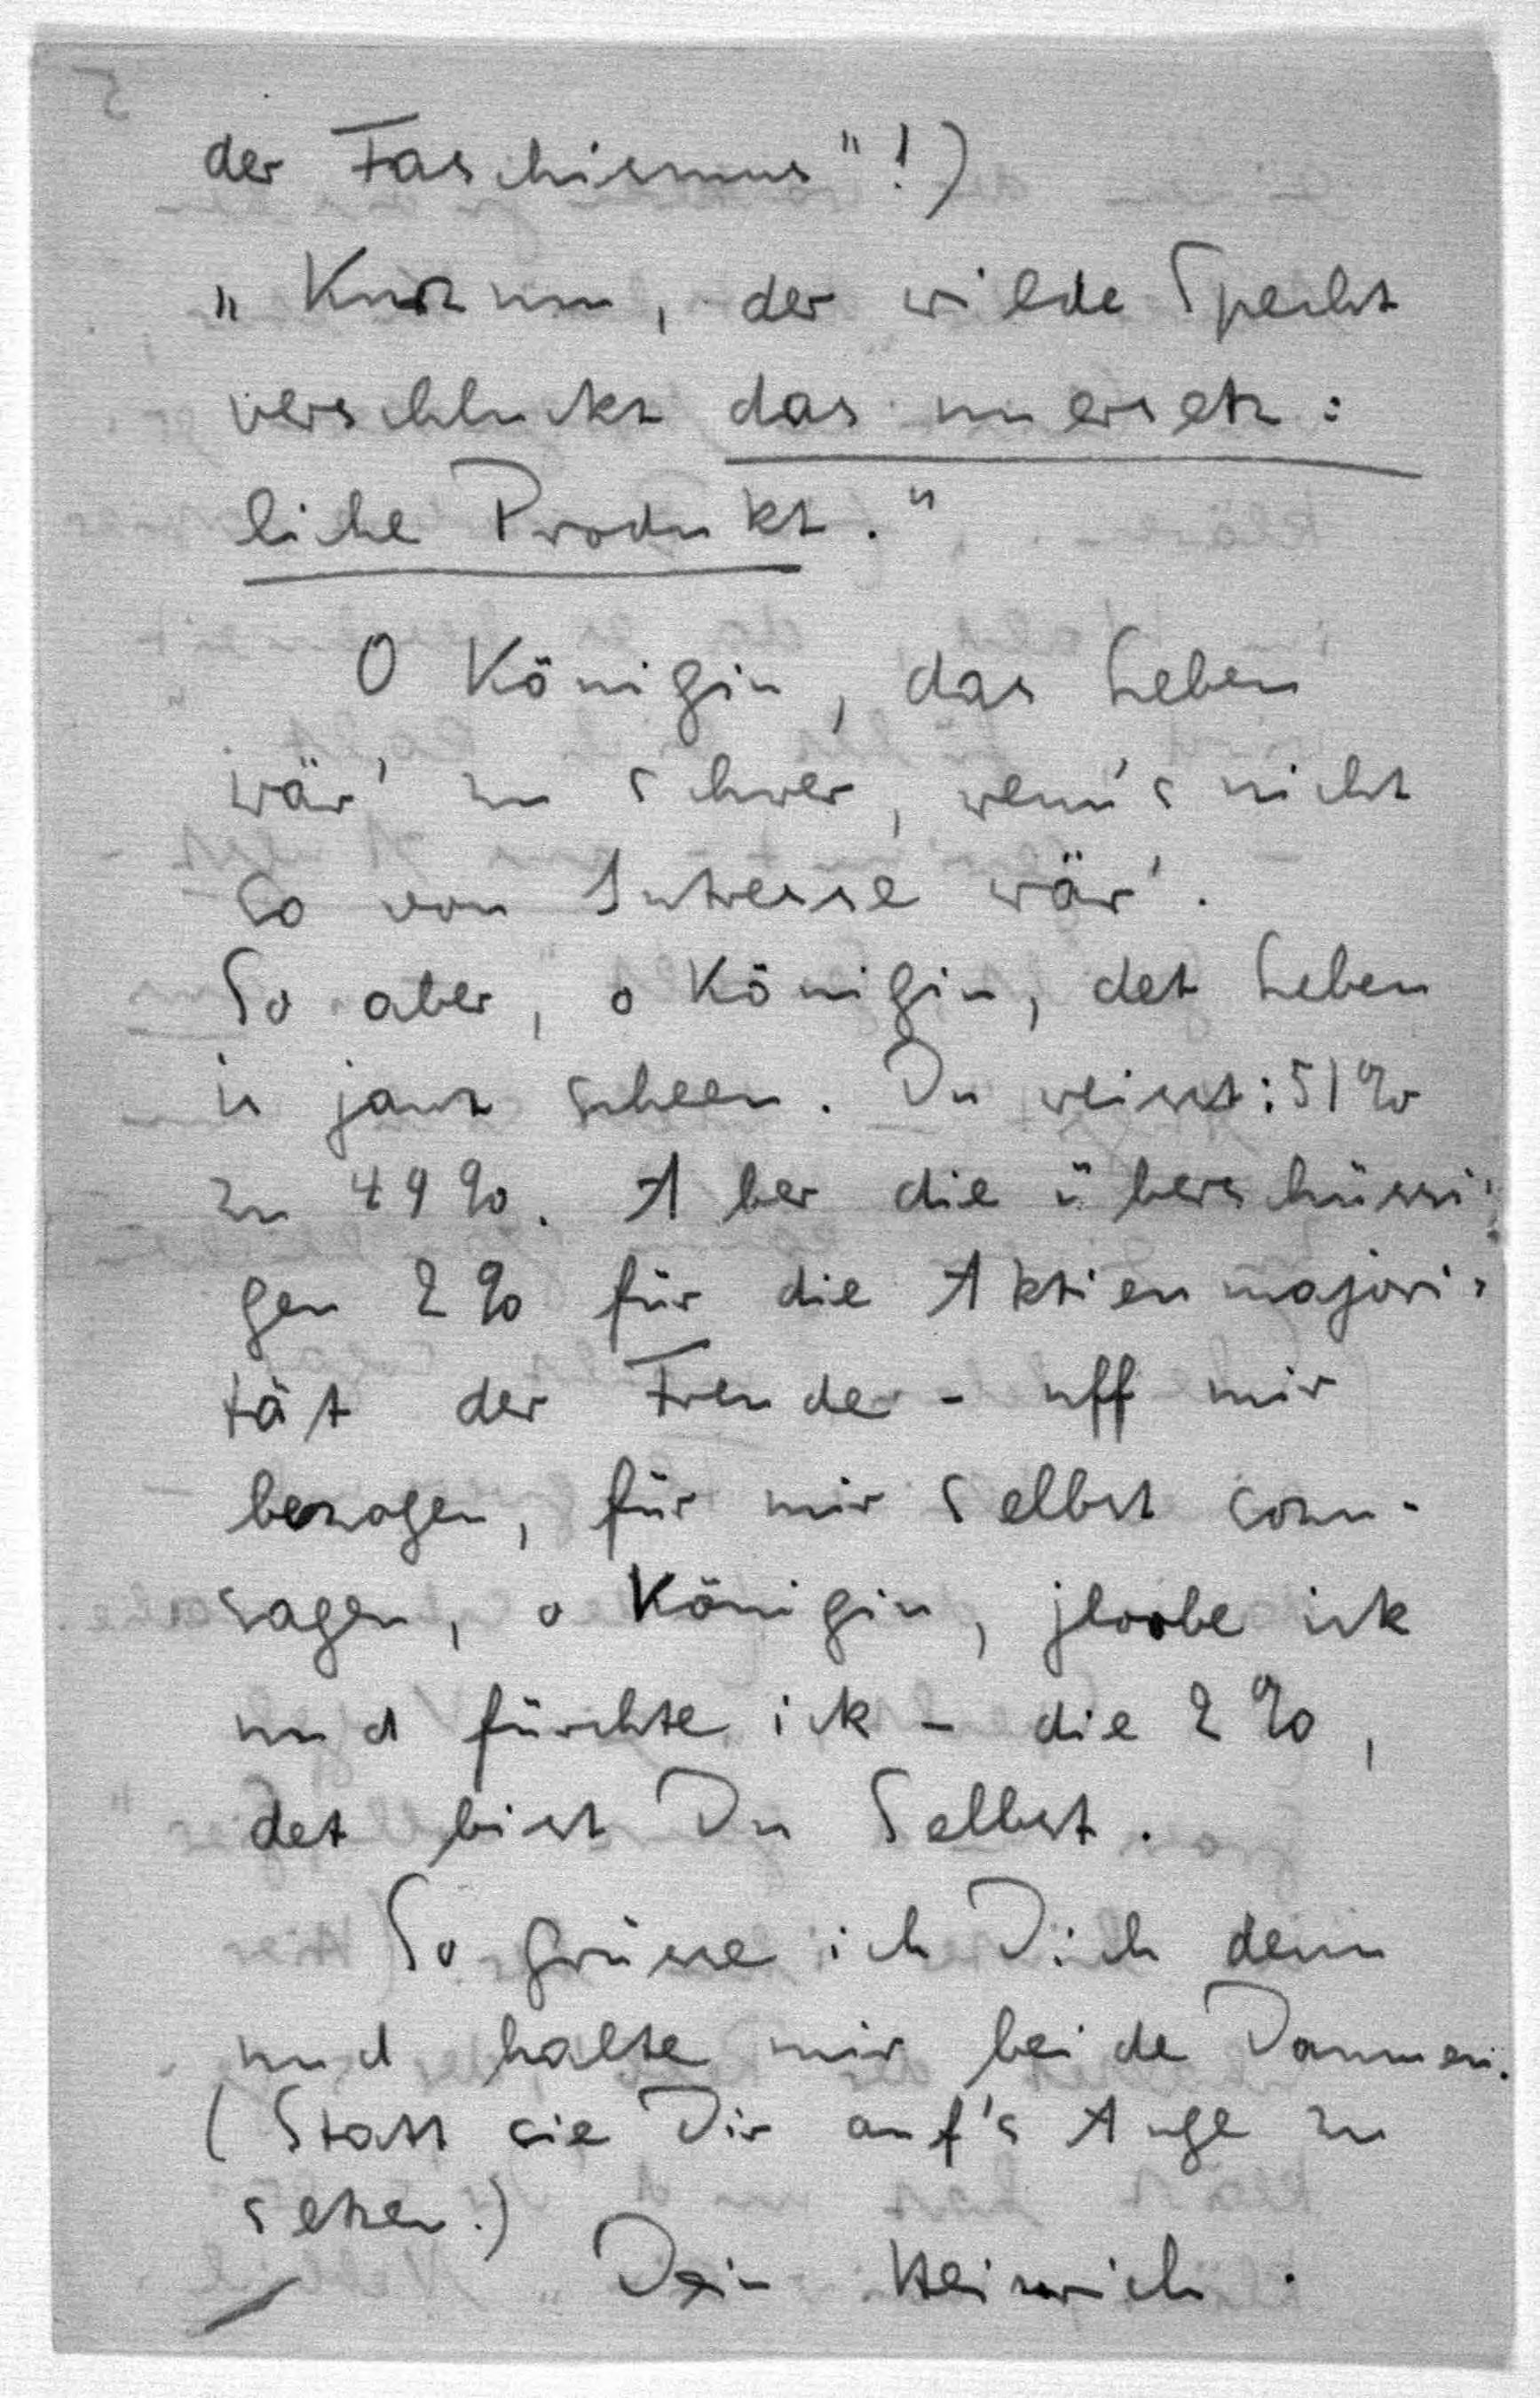 der Faschismus"!)
„Kurzum, der wilde Specht
verschluckt das unersetz:
liche Produkt."
O Königin, das Leben
wär' zu schwer, wenn's nicht
so von Interesse wär'.
So aber, o Königin, det Leben
is janz scheen. Du weisst: 51%
zu 49%. Aber die überschüssi:
gen 2% für die Aktienmajori:
tät der Freude - uff mir
bezogen, für mir selbst sozu-
sagen, o Königin, jloobe ick
und fürchte ick - die 2%,
det bist Du Selbst.
So grüsse ich Dich denn
und halte mir beide Daumen.
(Statt sie Dir auf's Auge zu
setzen.)
Dein Heinrich.